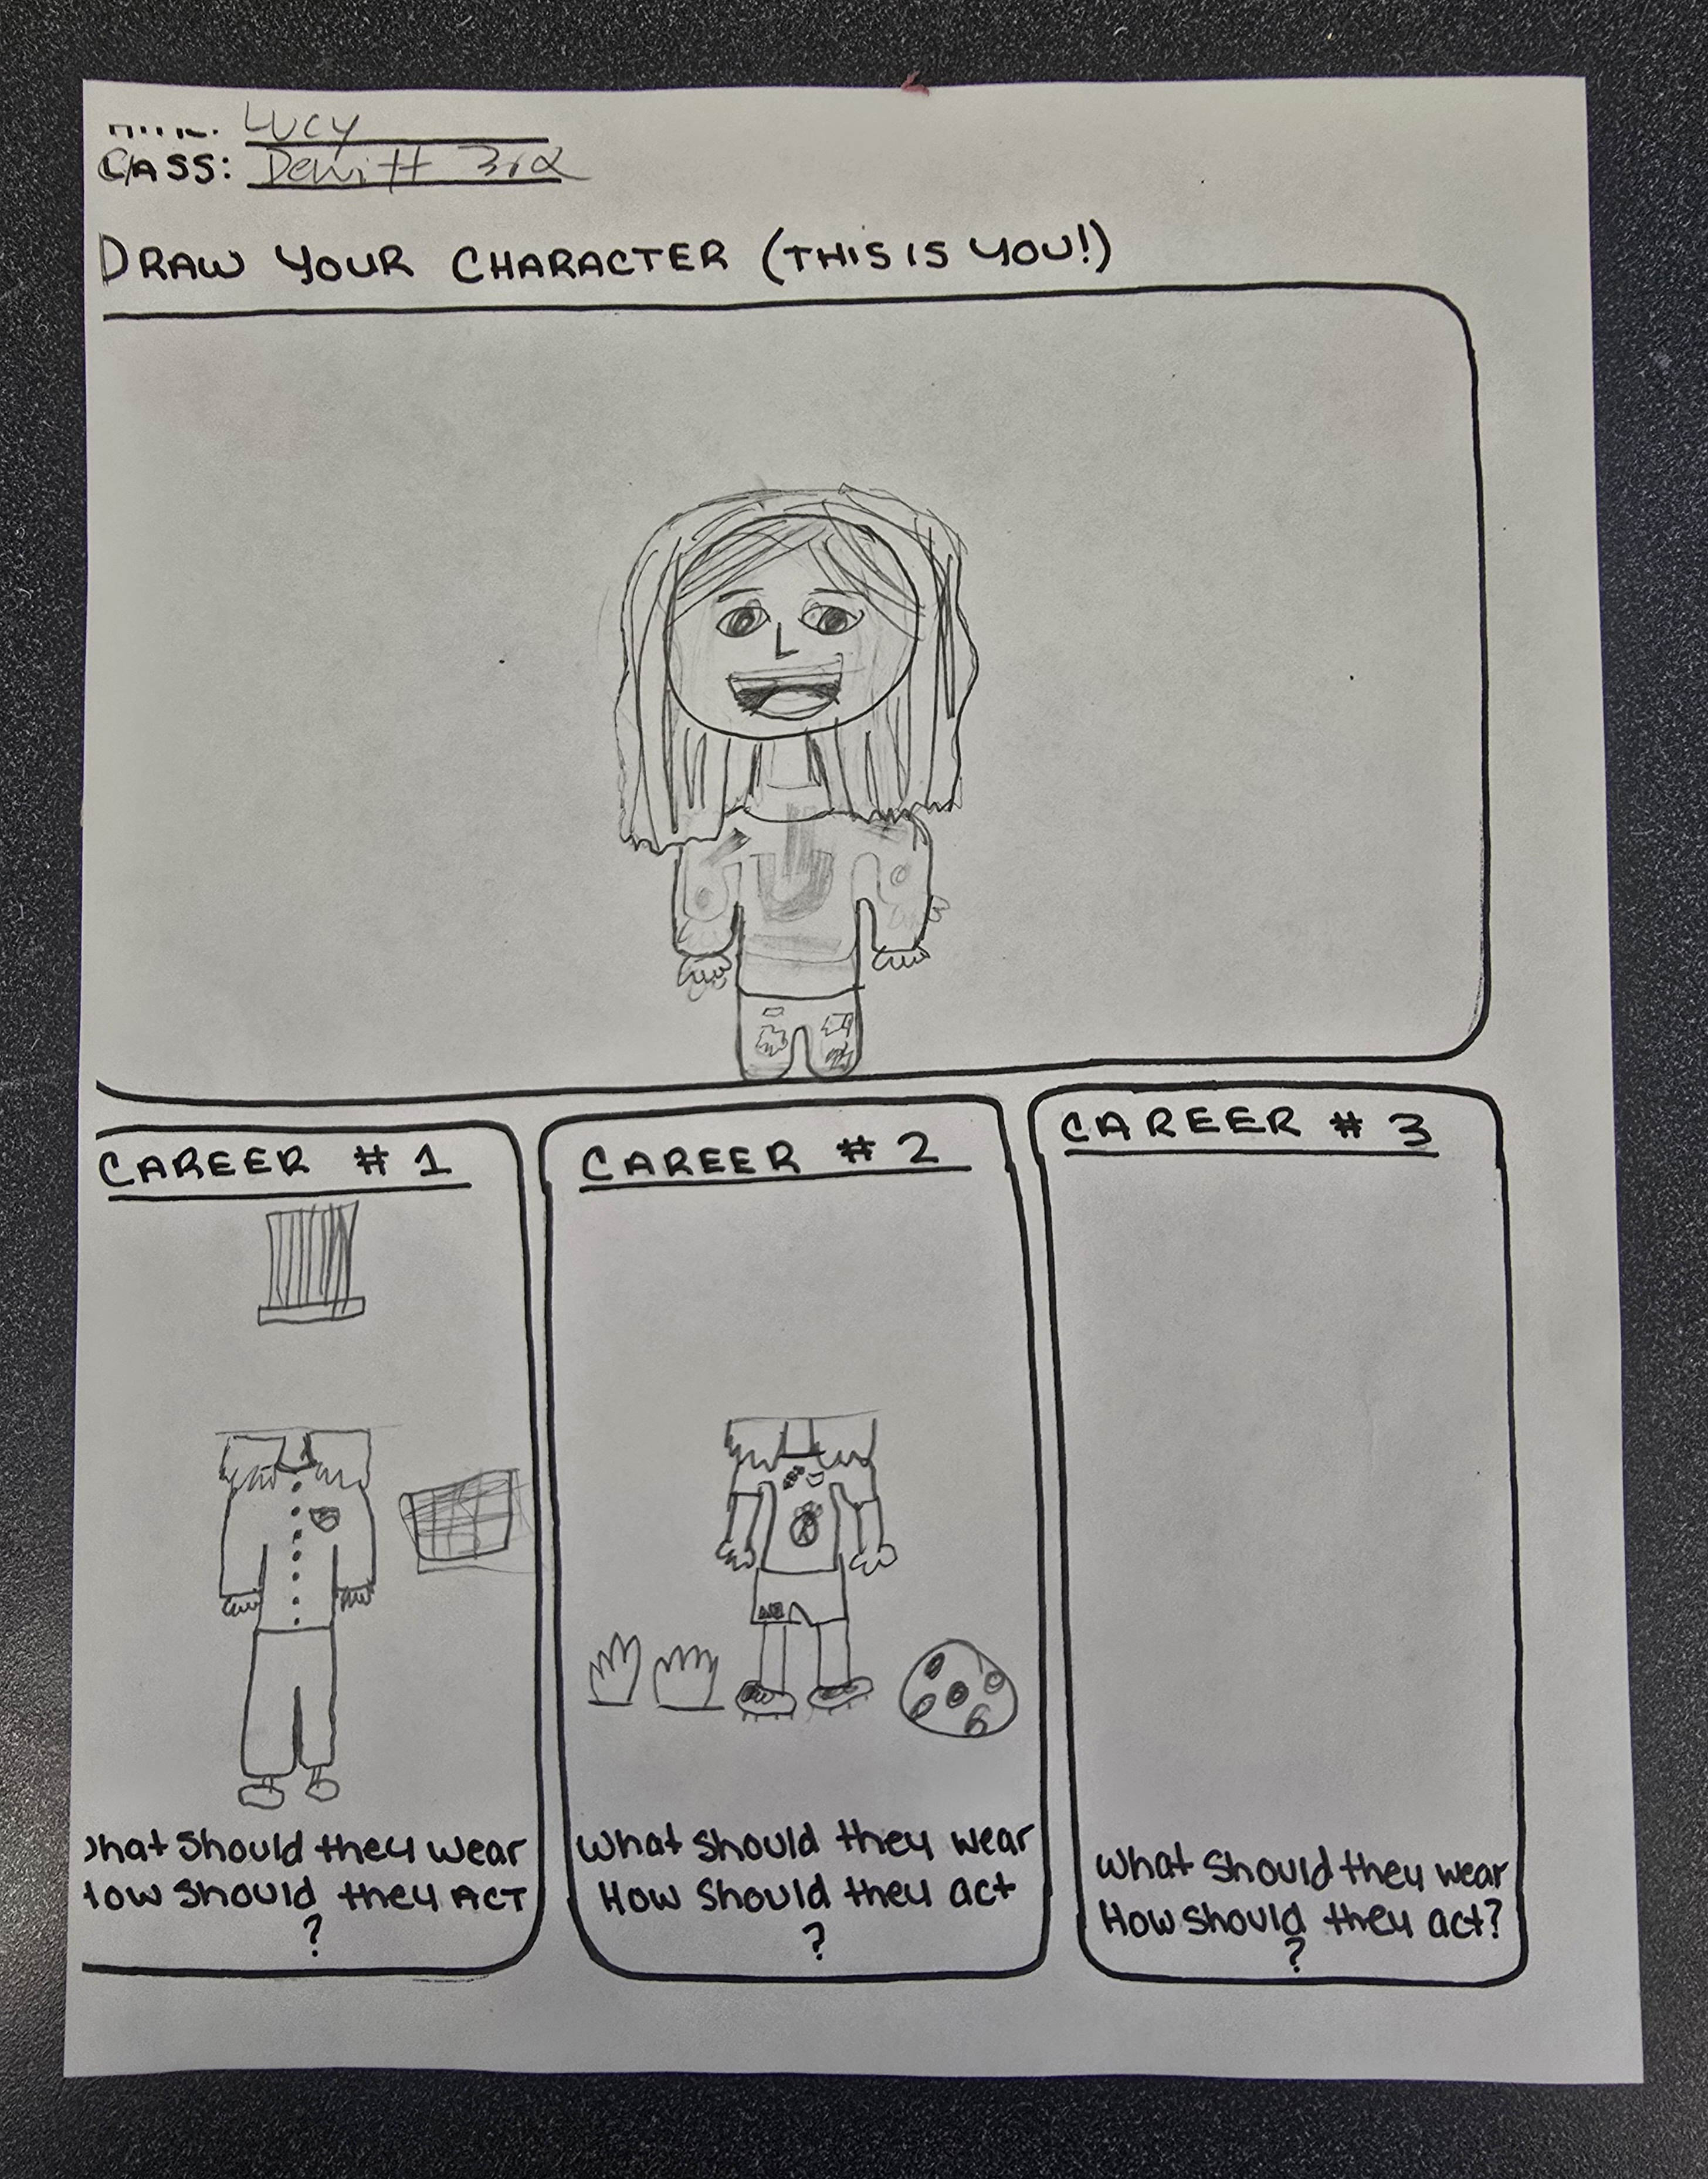 LUCY
CLASS: Dewitt 3rd
DRAW YOUR CHARACTER (THIS IS YOU!)
CAREER # 1
CAREER # 2
CAREER # 3
hat should they wear
How should they ACT
?
What should they wear
How should they act
?
What should they wear
How should they act?
?